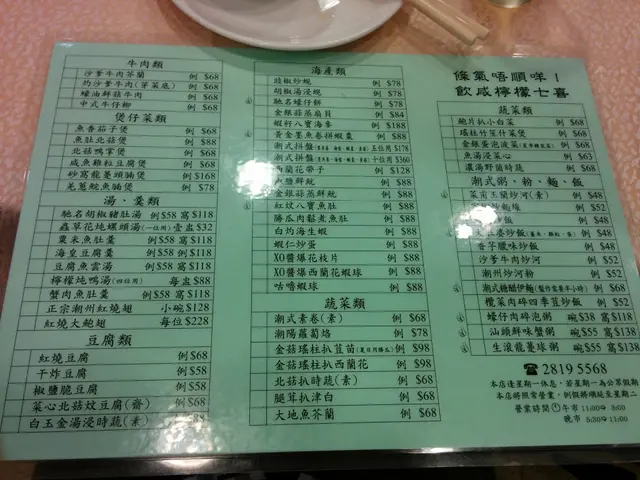 牛肉類
沙爹牛肉芥蘭 例 $68
灼沙爹牛肉(芽菜底) 例 $68
蠔油鮮菇牛肉 例 $68
中式牛仔柳 例 $68
煲仔菜類
魚香茄子煲 例 $68
魚肚北菇煲 例 $88
北菇鴨掌煲 例 $68
咸魚雞粒豆腐煲 例 $68
砂窩龍躉頭腩煲 例 $168
羌蔥鯇魚腩煲 例 $78
湯．羹類
馳名胡椒豬肚湯 例 $58 窩 $118
蟲草花地螺頭湯(一位用) 壹盅 $32
粟米魚肚羹 例 $58 窩 $118
海皇豆腐羹 例 $58 例 $118
豆腐魚雲湯 例 $58 窩 $118
檸檬炖鴨湯(四位用) 每盅 $88
蟹肉魚肚羹 例 $58 窩 $118
正宗潮州紅燒翅 小碗 $128
紅燒大鮑翅 每位 $228
豆腐類
紅燒豆腐 例 $68
干炸豆腐 例 $58
椒鹽脆豆腐 例 $58
菜心北菇炆豆腐(齋) 例 $68
白玉金湯浸時蔬(素) 例 $68
海產類
豉椒炒蜆 例 $78
胡椒湯浸蜆 例 $78
馳名蠔仔餅 例 $78
金銀蒜蒸扇貝 例 $84
蝦籽八寶海參 例 $188
黃金墨魚卷拼蝦棗 例 $88
潮式拼盤 五位用 $178
潮式拼盤 十位用 $360
西蘭花帶子 例 $128
鹽鮮魷 例 $88
金銀蒜蒸鮮魷 例 $88
紅炆八寶魚肚 例 $88
勝瓜肉鬆煮魚肚 例 $88
白灼海生蝦 例 $88
蝦仁炒蛋 例 $88
XO醬爆花枝片 例 $88
XO醬爆西蘭花蝦球 例 $88
咕嚕蝦球 例 $88
蔬菜類
潮式素卷(素) 例 $68
潮陽蘿蔔烙 例 $78
金菇瑤柱扒莧苗(夏日用勝瓜) 例 $98
金菇瑤柱扒西蘭花 例 $98
北菇扒時蔬(素) 例 $68
腿茸扒津白 例 $68
大地魚芥蘭 例 $68
條氣唔順咩！
飲咸檸檬七喜
蔬菜類
鮑片扒小白菜 例 $68
瑤柱竹笙什菜煲 例 $68
金銀蛋泡波菜 例 $68
魚湯浸菜心 例 $63
濃湯野菌時蔬 例 $68
潮式粥．粉．麵．飯
菜甫王蘭炒河(素) 例 $48
例 $52
炒飯 例 $48
婆炒飯 例 $68
香芋臘味炒飯 例 $48
沙爹牛肉炒河 例 $52
潮州炒河粉 例 $52
潮式糖醋伊麵(製作需要半小時) 例 $68
欖菜肉碎四季荳炒飯 例 $52
蠔仔肉碎泡粥 碗 $38 窩 $118
汕頭鮮味蟹粥 碗 $55 窩 $138
生滾龍躉球粥 碗 $55 窩 $138
☎2819 5568
本店逢星期一休息，若星期一為公眾假期
本店將照常營業，例假將順延至星期二
營業時間 午市 11:00至 3:00
晚市 5:30至 11:00